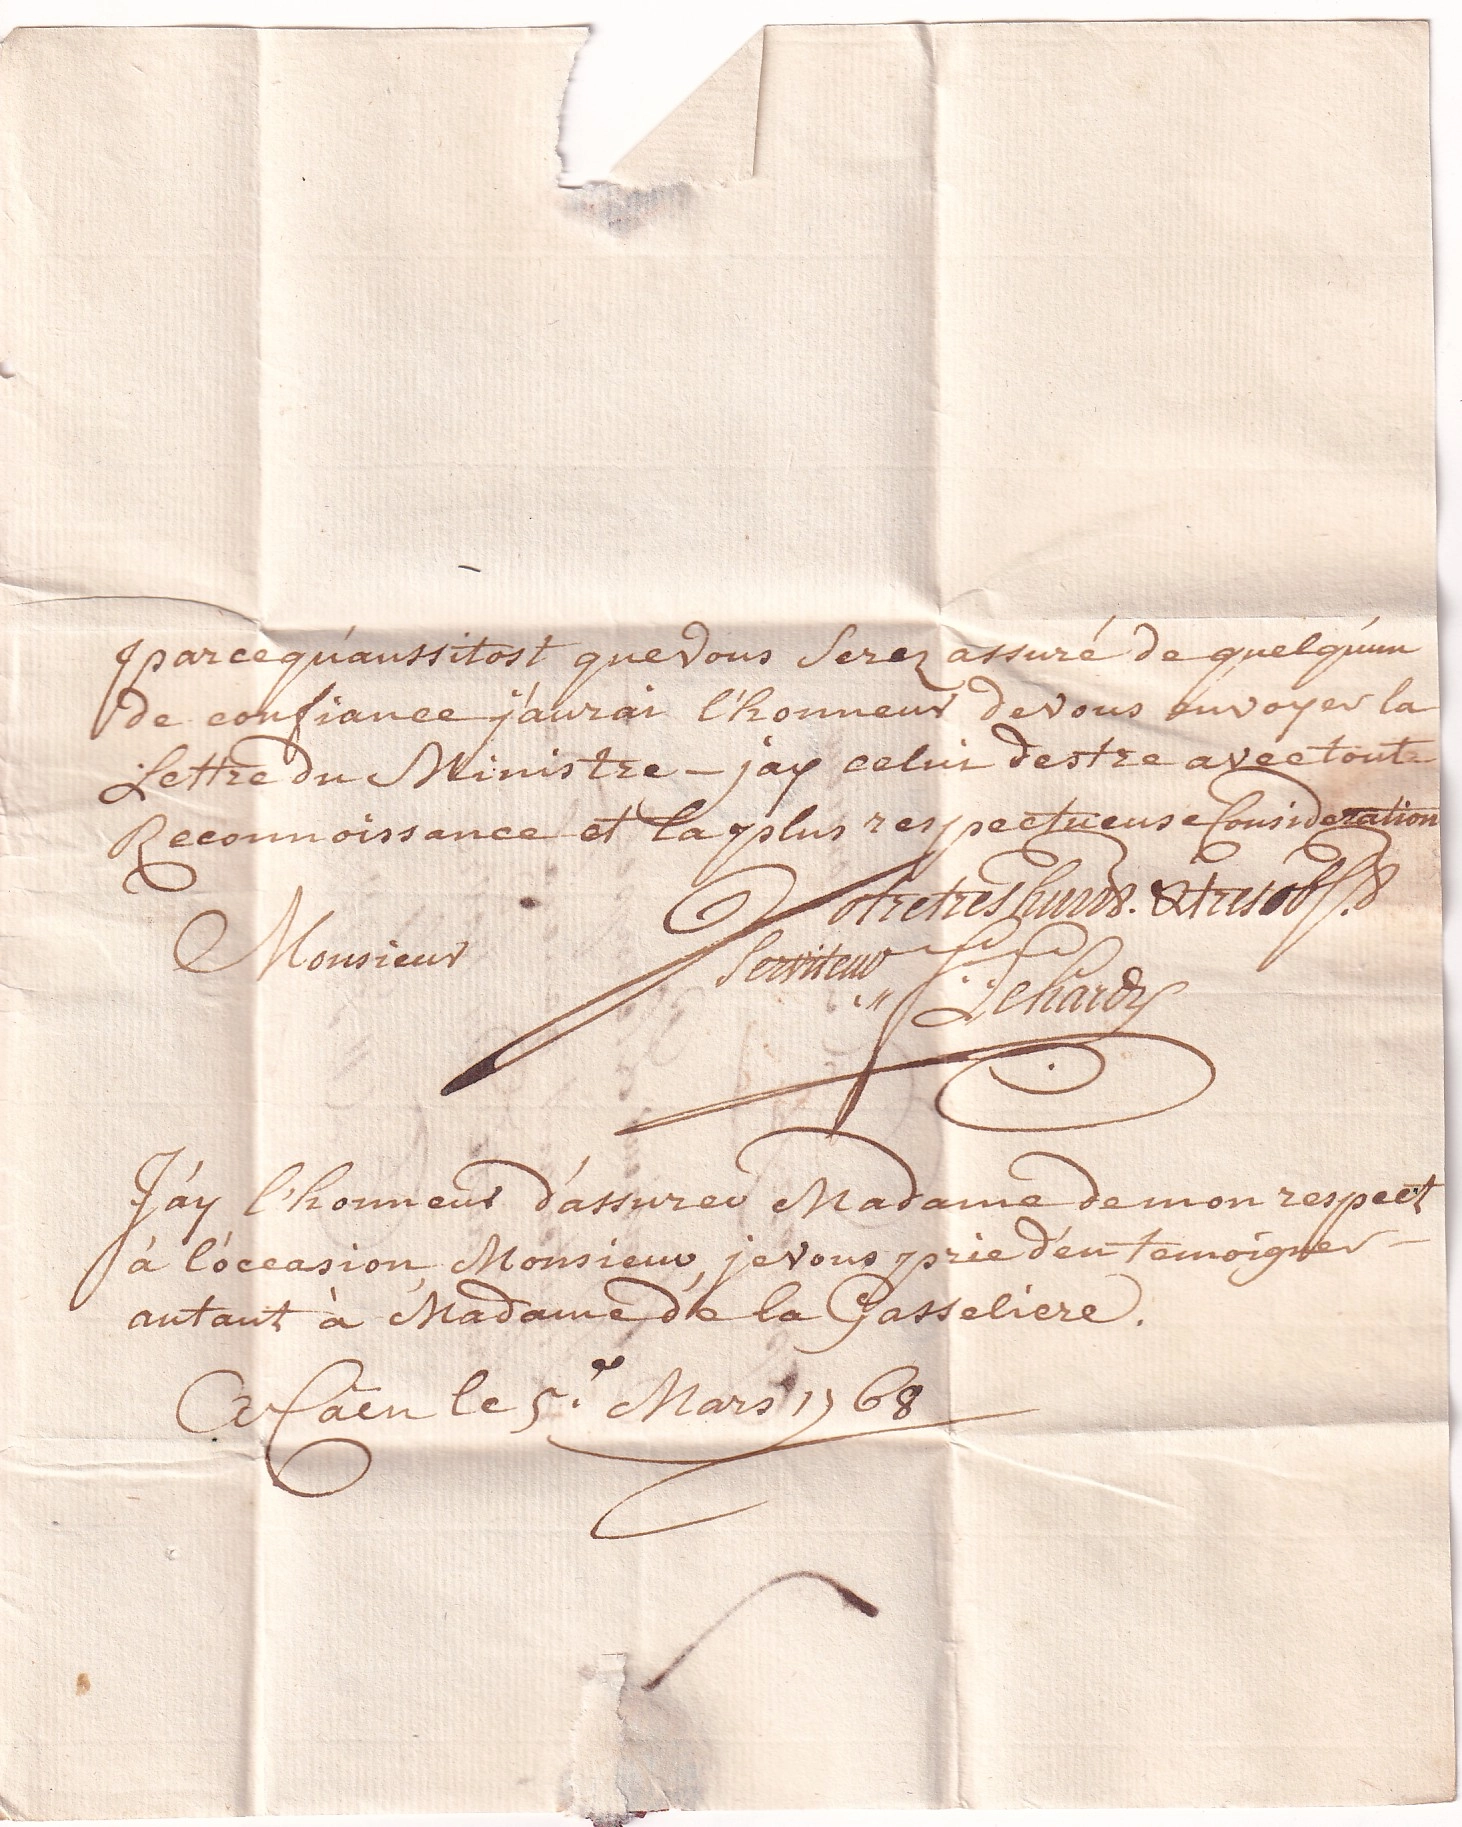 parcequ'aussitost que vous serez assuré de quelqu'un
de confiance j'aurai l'honneur de vous énvoyer la
Lettre du Ministre – jay celui destre avec toute
Reconnoissance et la plus respectueuse Consideration
Votre tres humb. & tres ob.
Monsieur Serviteur
Lehardy
J'áy l'honneur d'assurer Madame de mon respect
à l'óccasion Monsieur, je vous prie d'én temoigner –
autant à Madame de la Gasseliere.
A Câen le 5.e Mars 1768